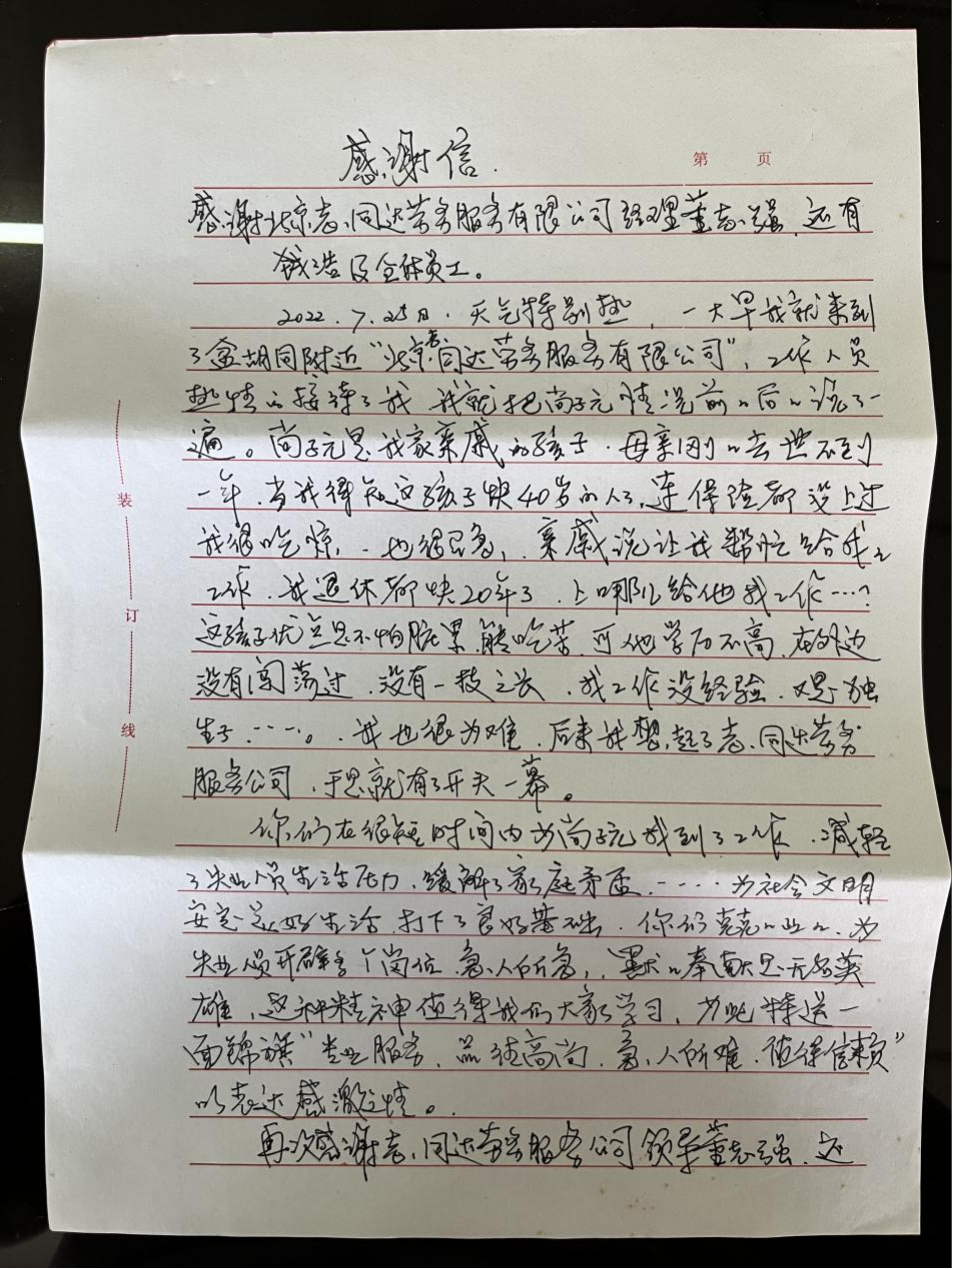 感谢信.
第 页
感谢北京志同达劳务服务有限公司经理董志强、还有
钱浩及全体员工。
2022.7.25日.天气特别热,一大早我就来到
了金胡同附近“北京志同达劳务服务有限公司”,工作人员
热情的接待了我 我就把尚子元情况前々后々说了一
遍。尚子元是我家亲戚的孩子.母亲刚々去世不到
一年.当我得知这孩子快40岁的人了,连保险都没上过
我很吃惊,也很着急,亲戚说让我帮忙给找个
工作.我退休都快20年了.上哪儿给他找工作…?
这孩子优点是不怕脏累,能吃苦,可他学历不高,在外边
没有闯荡过.没有一技之长.找工作没经验.又是独
生子……。我也很为难.后来我想起了志同达劳务
服务公司,于是就有了开头一幕。
你们在很短时间内为尚子元找到了工作.减轻
了失业人员生活压力,缓解了家庭矛盾.……为社会文明
安定美好生活 打下了良好基础.你们兢々业々.为
失业人员开辟多个岗位.急人所急,默々奉献是无名英
雄,这种精神值得我们大家学习,为此特送一
面锦旗“专业服务.品德高尚.急人所难.值得信赖”
以表达感激之情。
再次感谢志同达劳务服务公司领导董志强.还
装
订
线